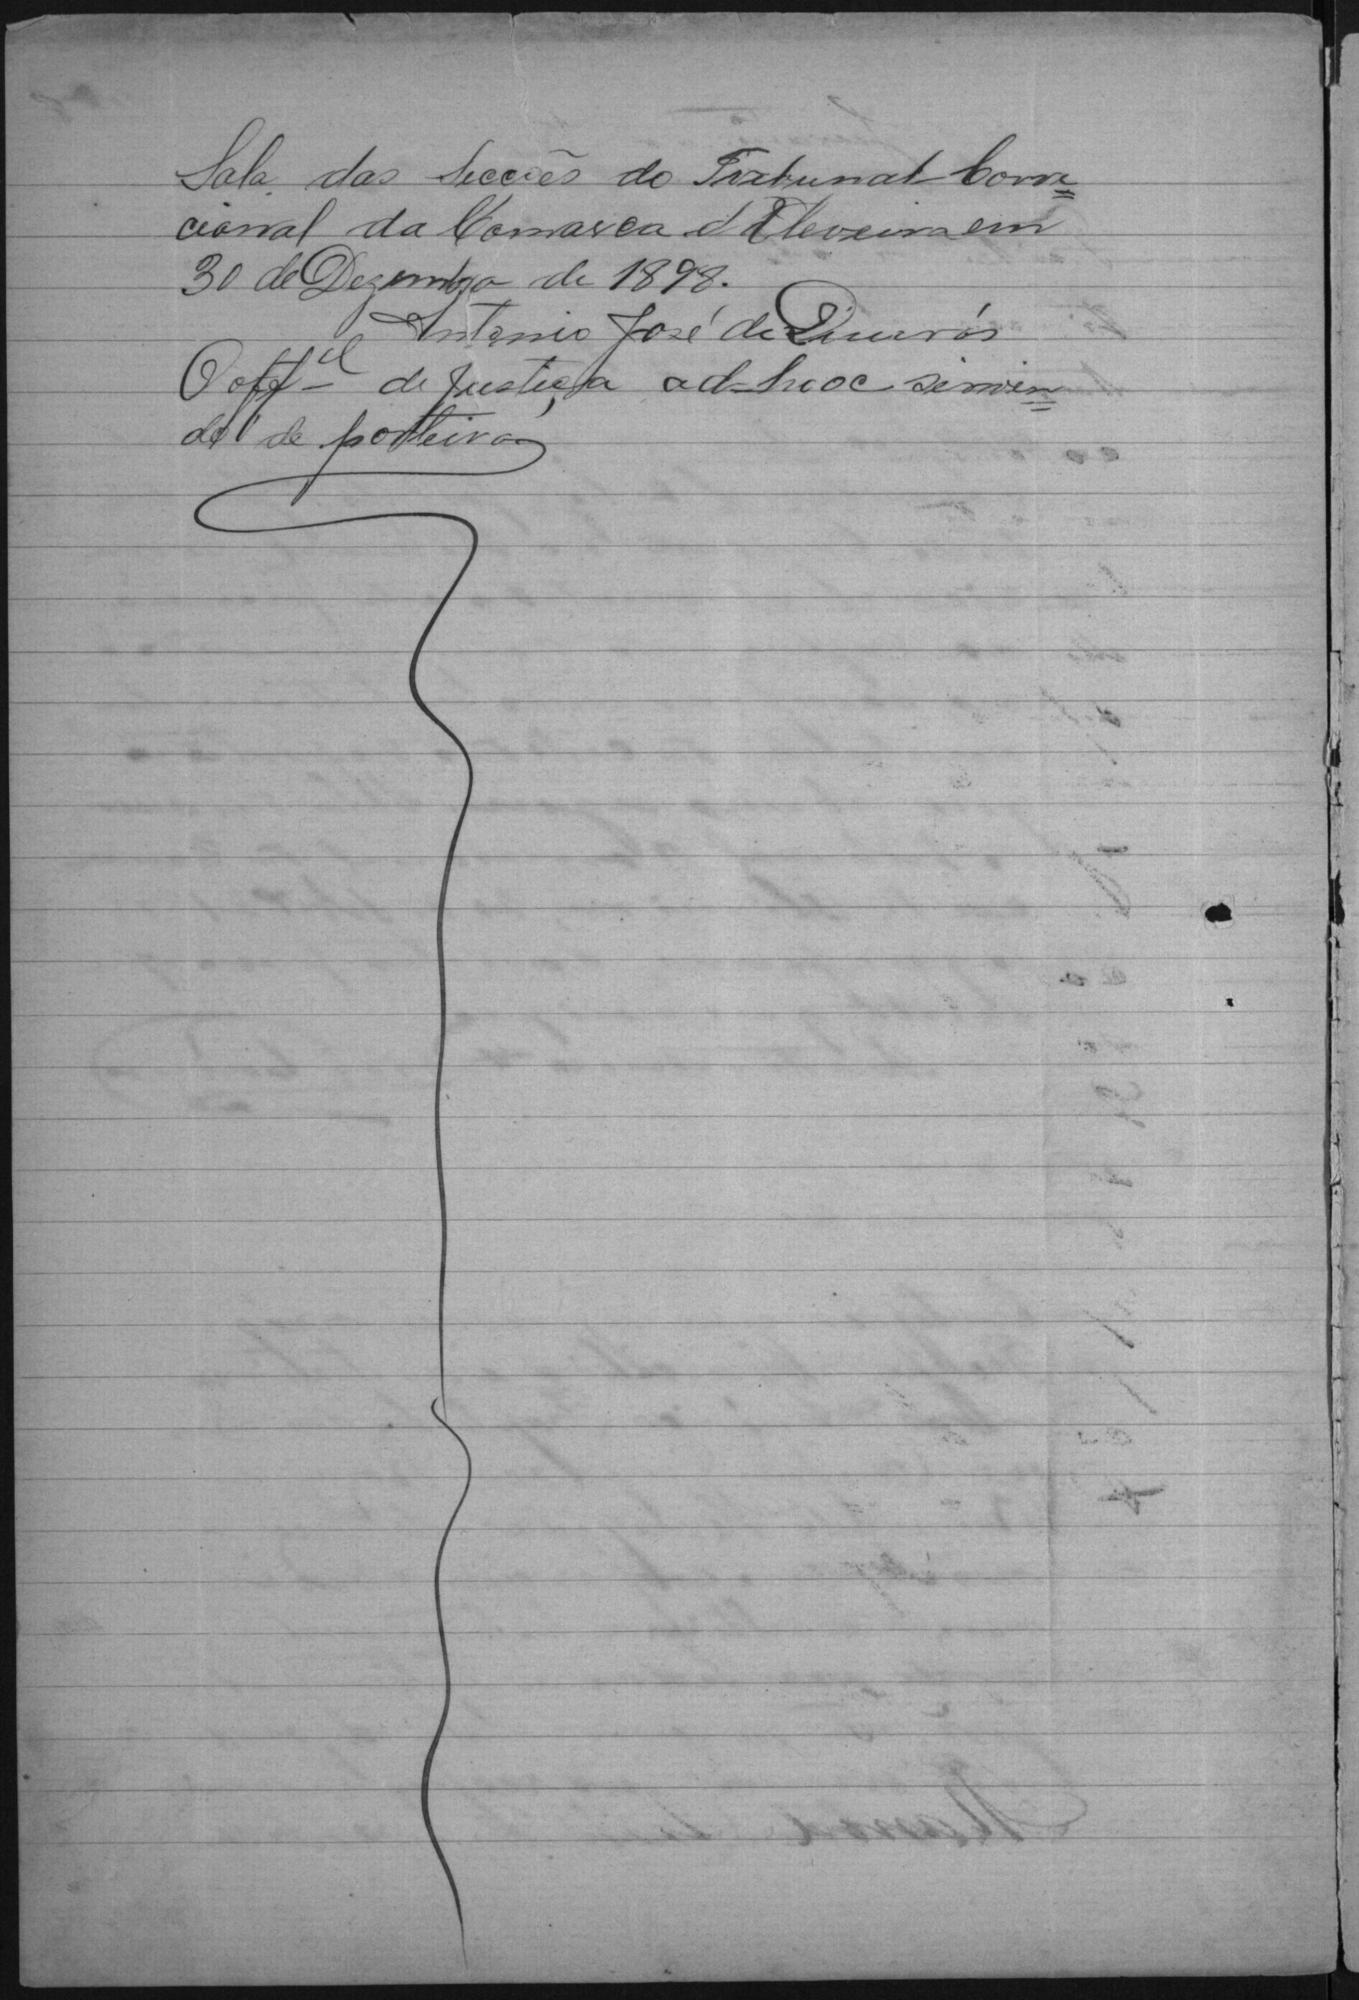 Sala das Secções do Tribunal Corre=
cional da Comarca d'Oliveira em
30 de Dezembro de 1898.
Antonio José de
O offal de Justiça ad-hoc servin=
do de porteiro,